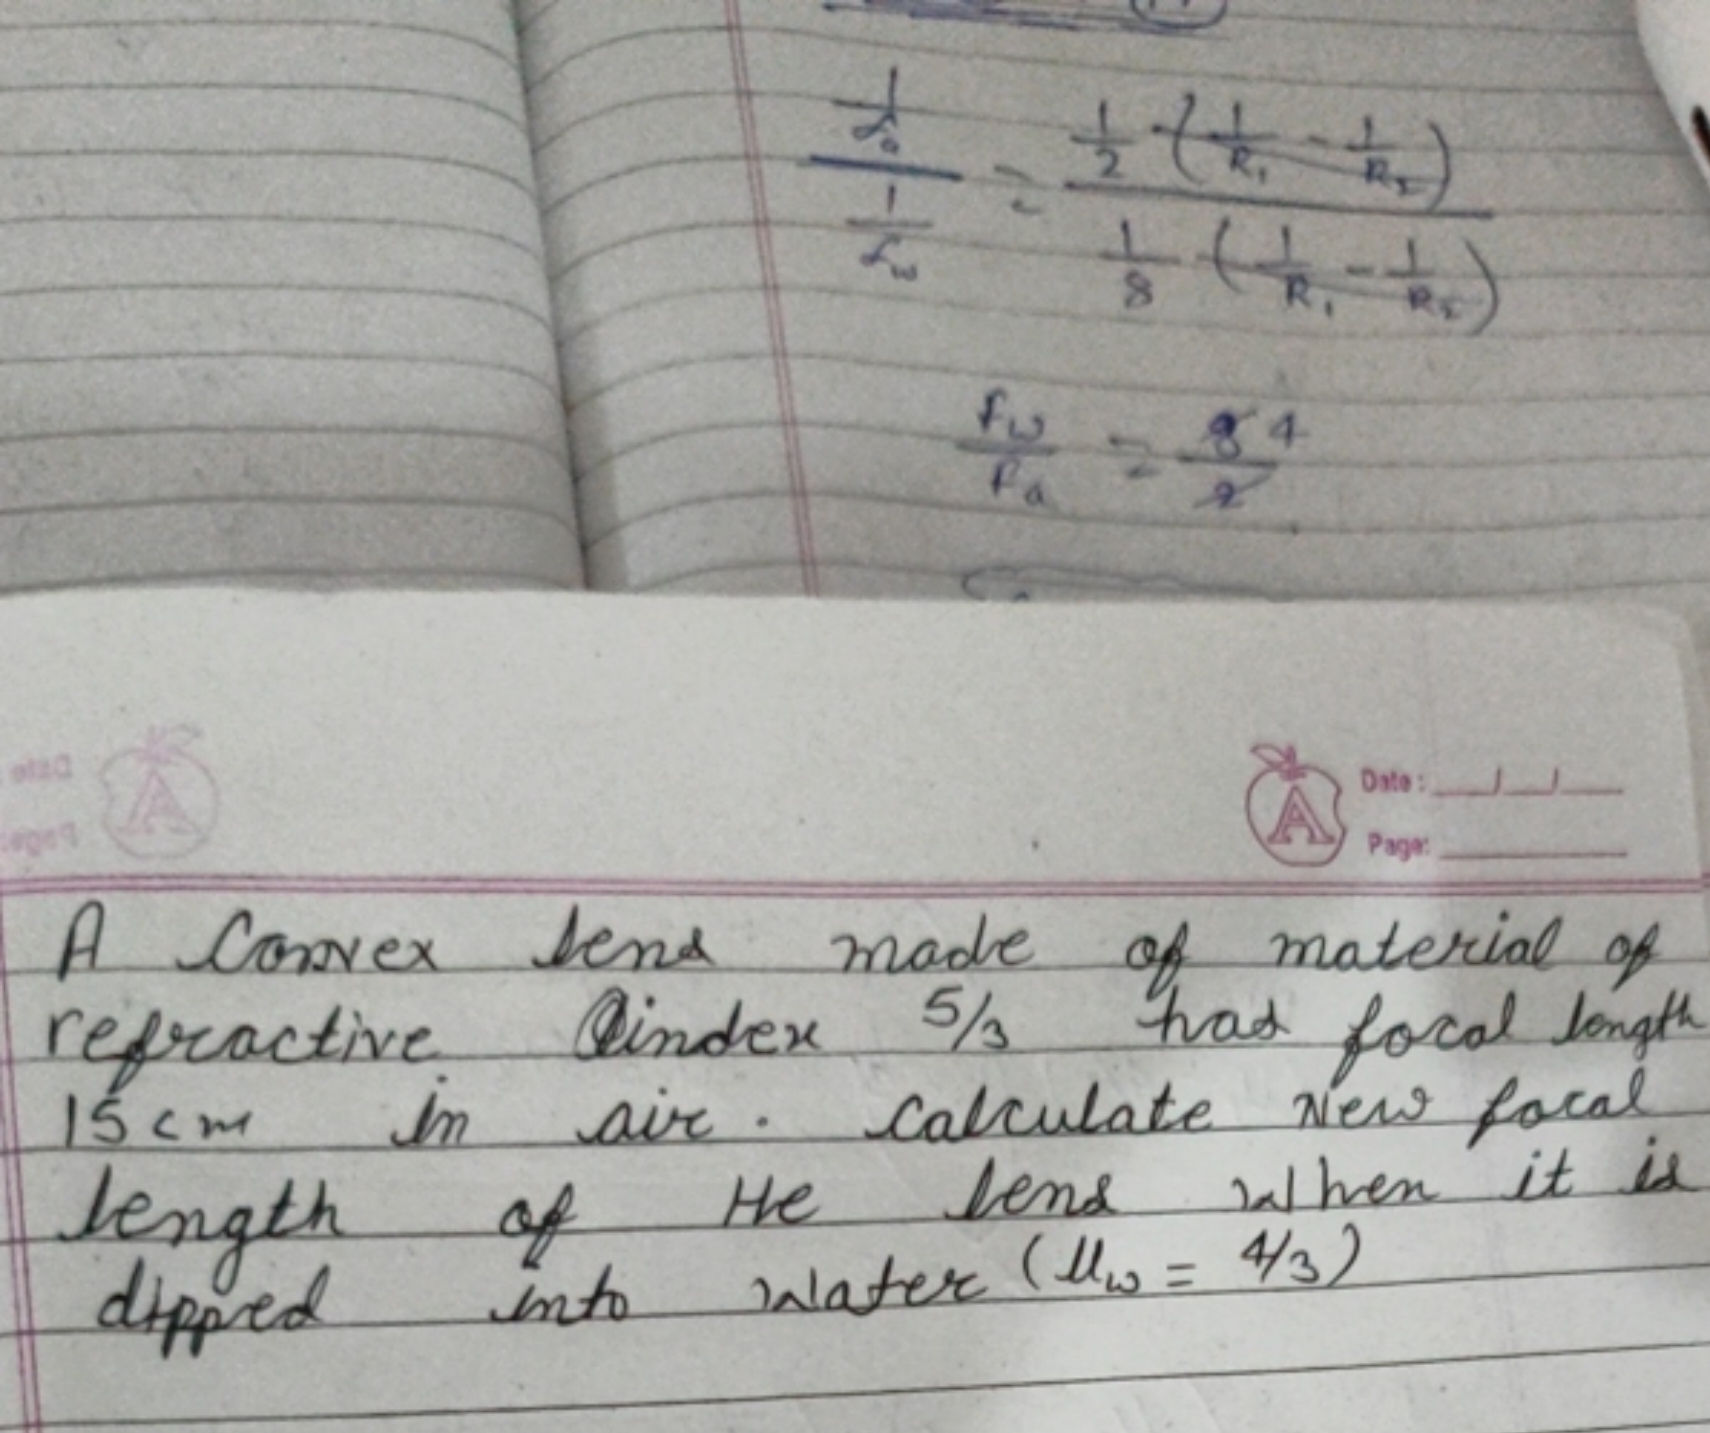 1/fa / 1/fw = 1/2 (1/R₁ - 1/R₂) / 1/8 (1/R₁ - 1/R₂)
fw/fa = 8/2 4
A
Date: __/__/__
Page:
A Convex lens made of material of
refractive index 5/3 has focal length
15cm in air. Calculate New focal
length of the lens when it is
dipped into water (μw = 4/3)